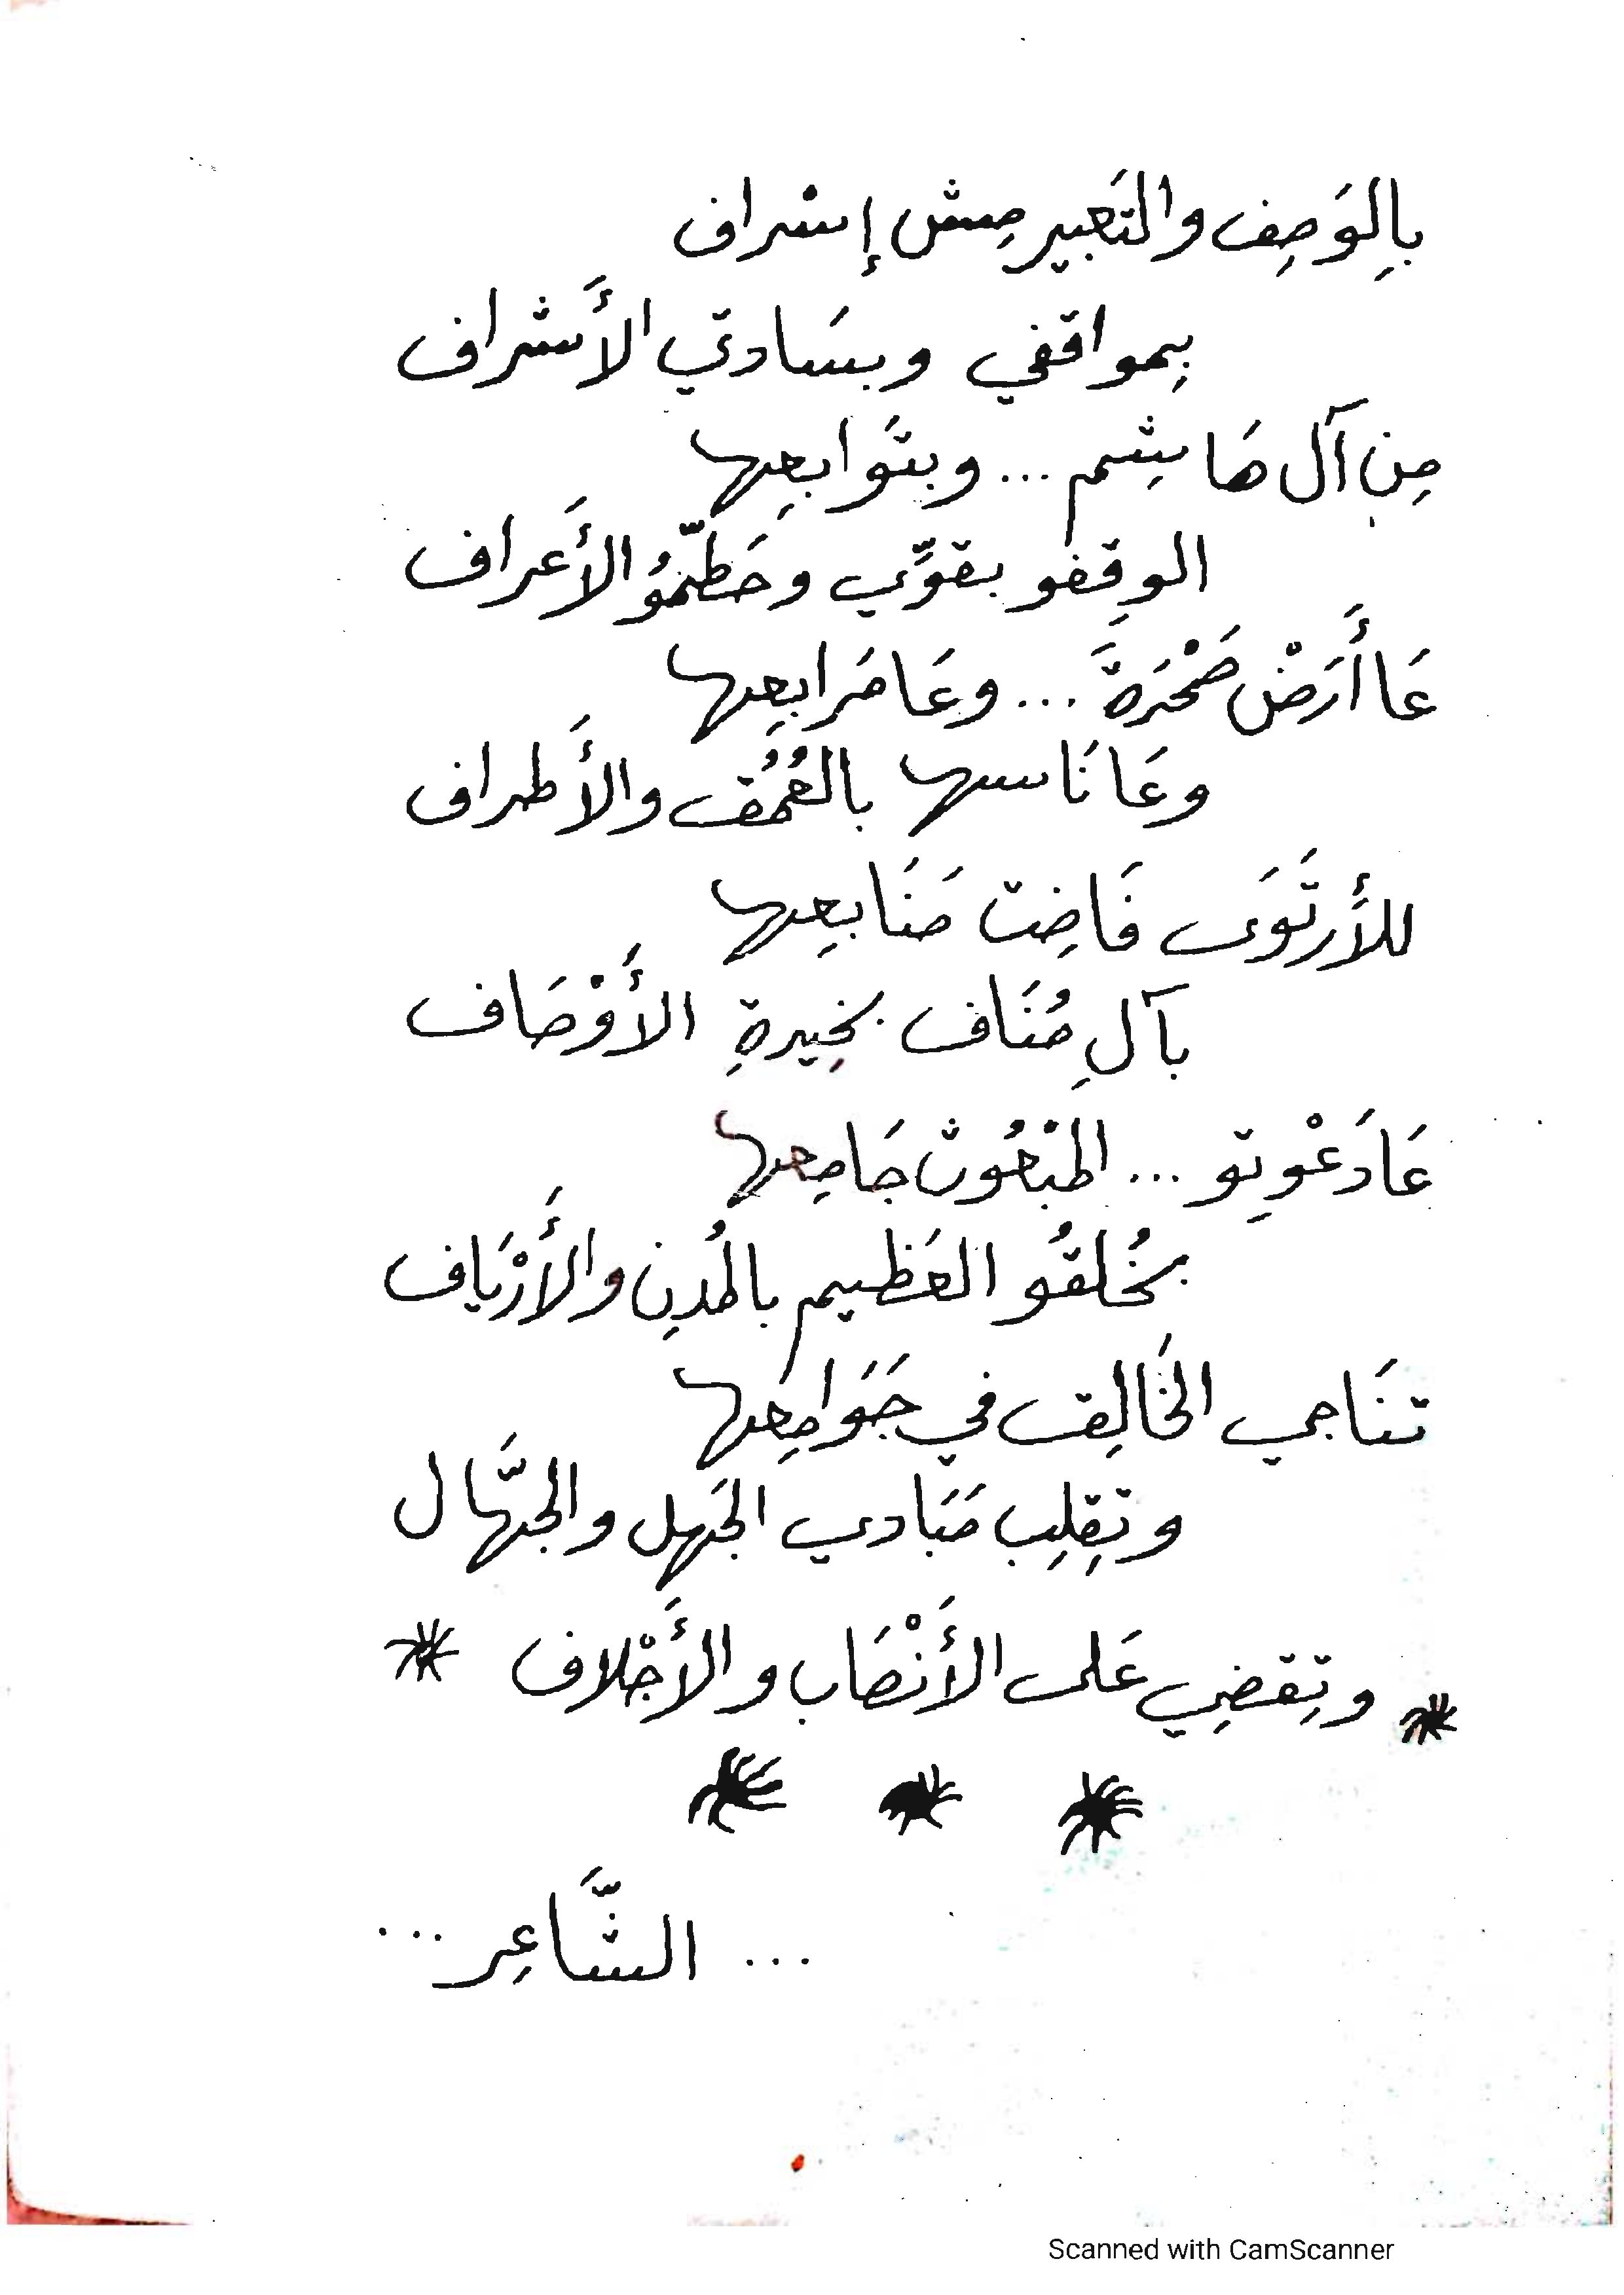 بِالوَصِف والتَعبير مِش إسْراف
بِمواقفي وبسَادتي الأَشراف
مِن آل هَاشِم ... وبتَوابعِها
الوقِفو بقوِّي وحَطّمُو الأَعراف
عَا أَرَضْ صَحْرَةَ ... وعَا مَرابِعِها
وعَا نَاسها بالعُمُق والأَطراف
للأَرتَوَى فَاضِت مَنَابعِها
بآلِ مُنَاف بخِيرةِ الأَوْصَاف
عَا دَعْوتِو ... المبْعُوث جَامِعها
بخُلقُو العَظيم بالمُدن والأَرْيَاف
تنَاجي الخَالِق في جَوَامِعَها
وتِقلِب مَبَادي الجَهل والجهَّال
وتِقضِي عَلى الأَنْصَاب والأَجْلاف
... الشَّاعِر ...
Scanned with CamScanner